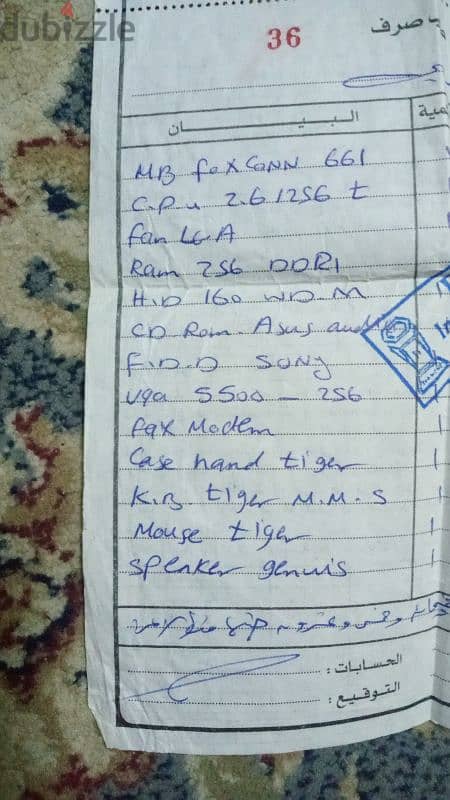 dubizzle
صرف
36
البيـــــان
MB foxconn 661
C.P.u 2.6 1256 t
fan LGA
Ram 256 DDR1
H.D 160 WD.M
CD Rom. Asus
F.D.D SONY
Vga 5500 - 256
fax Modem
Case hand tiger
K.B tiger M.M.S
Mouse tiger
speaker genuis
الحسابات :
التوقيع :